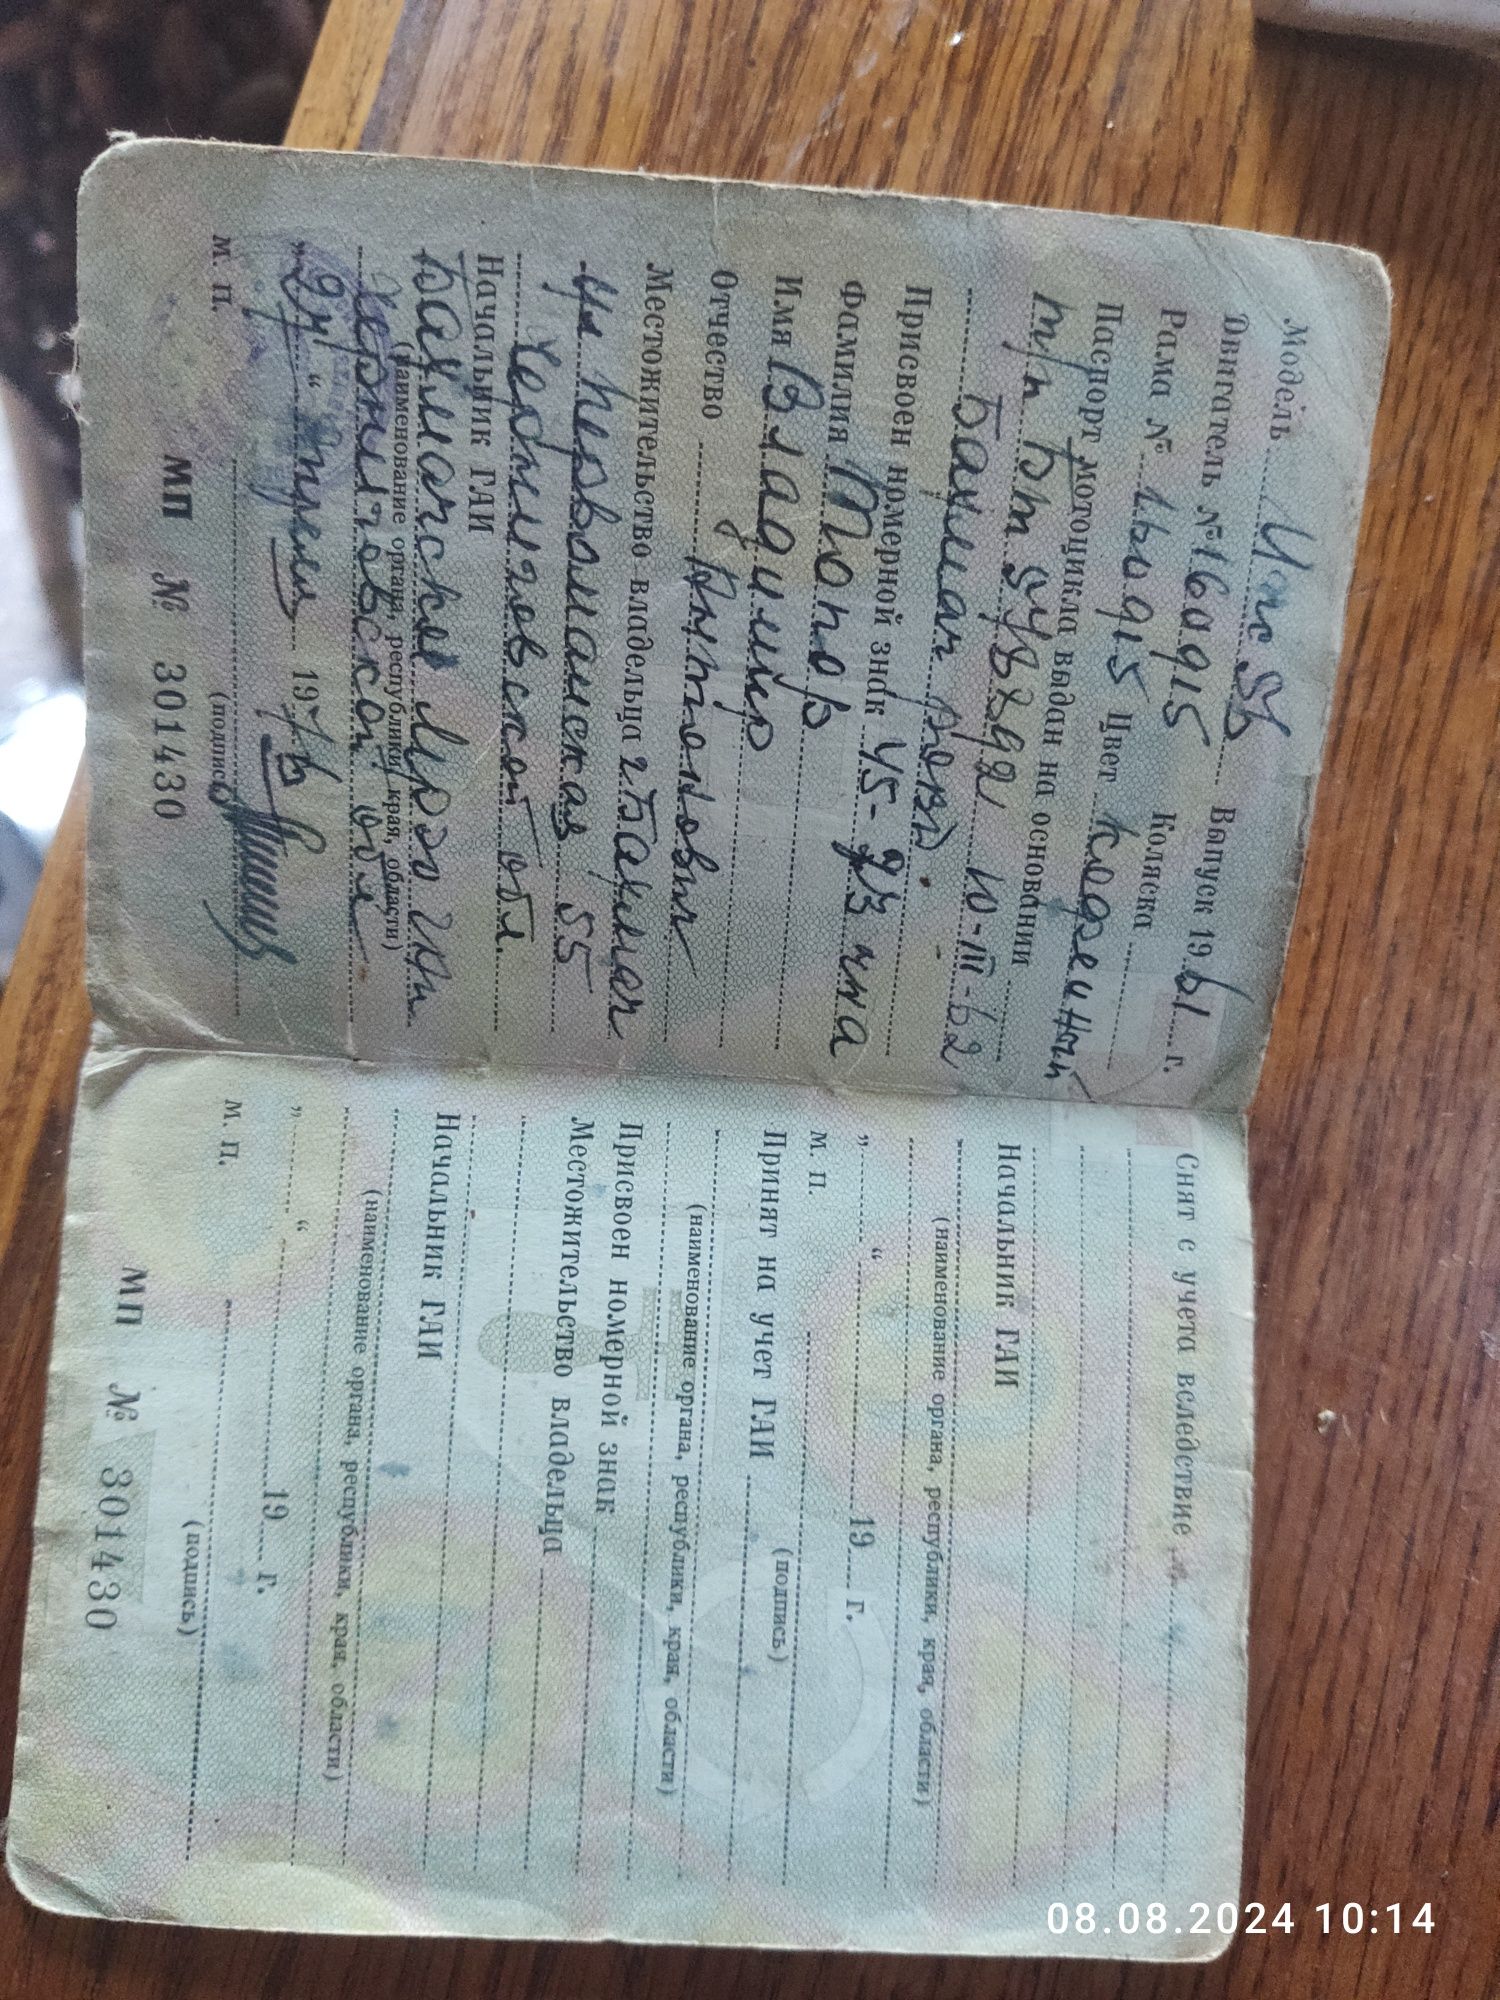 Модель Иж 56
Двигатель № 160915 Выпуск 1961 г.
Рама № 160915 Коляска
Паспорт мотоцикла выдан на основании
Цвет кофейный
т/п БТ 10-III-62
Бахмач
Присвоен номерной знак 45-73 чна
Фамилия Топор
Имя Владимир
Отчество Антонович
Местожительство владельца г Бахмач
ул Первомайская 55
Черниговской обл.
Начальник ГАИ
Бахмачское
Черниговской обл
(наименование органа, республики, края, области)
„24“ апреля 1976
м. п. (подпись)
МП № 301430
Снят с учета вследствие
Начальник ГАИ
(наименование органа, республики, края, области)
„ “ 19 г.
м. п. (подпись)
Принят на учет ГАИ
(наименование органа, республики, края, области)
Присвоен номерной знак
Местожительство владельца
Начальник ГАИ
(наименование органа, республики, края, области)
„ “ 19 г.
м. п. (подпись)
МП № 301430
08.08.2024 10:14